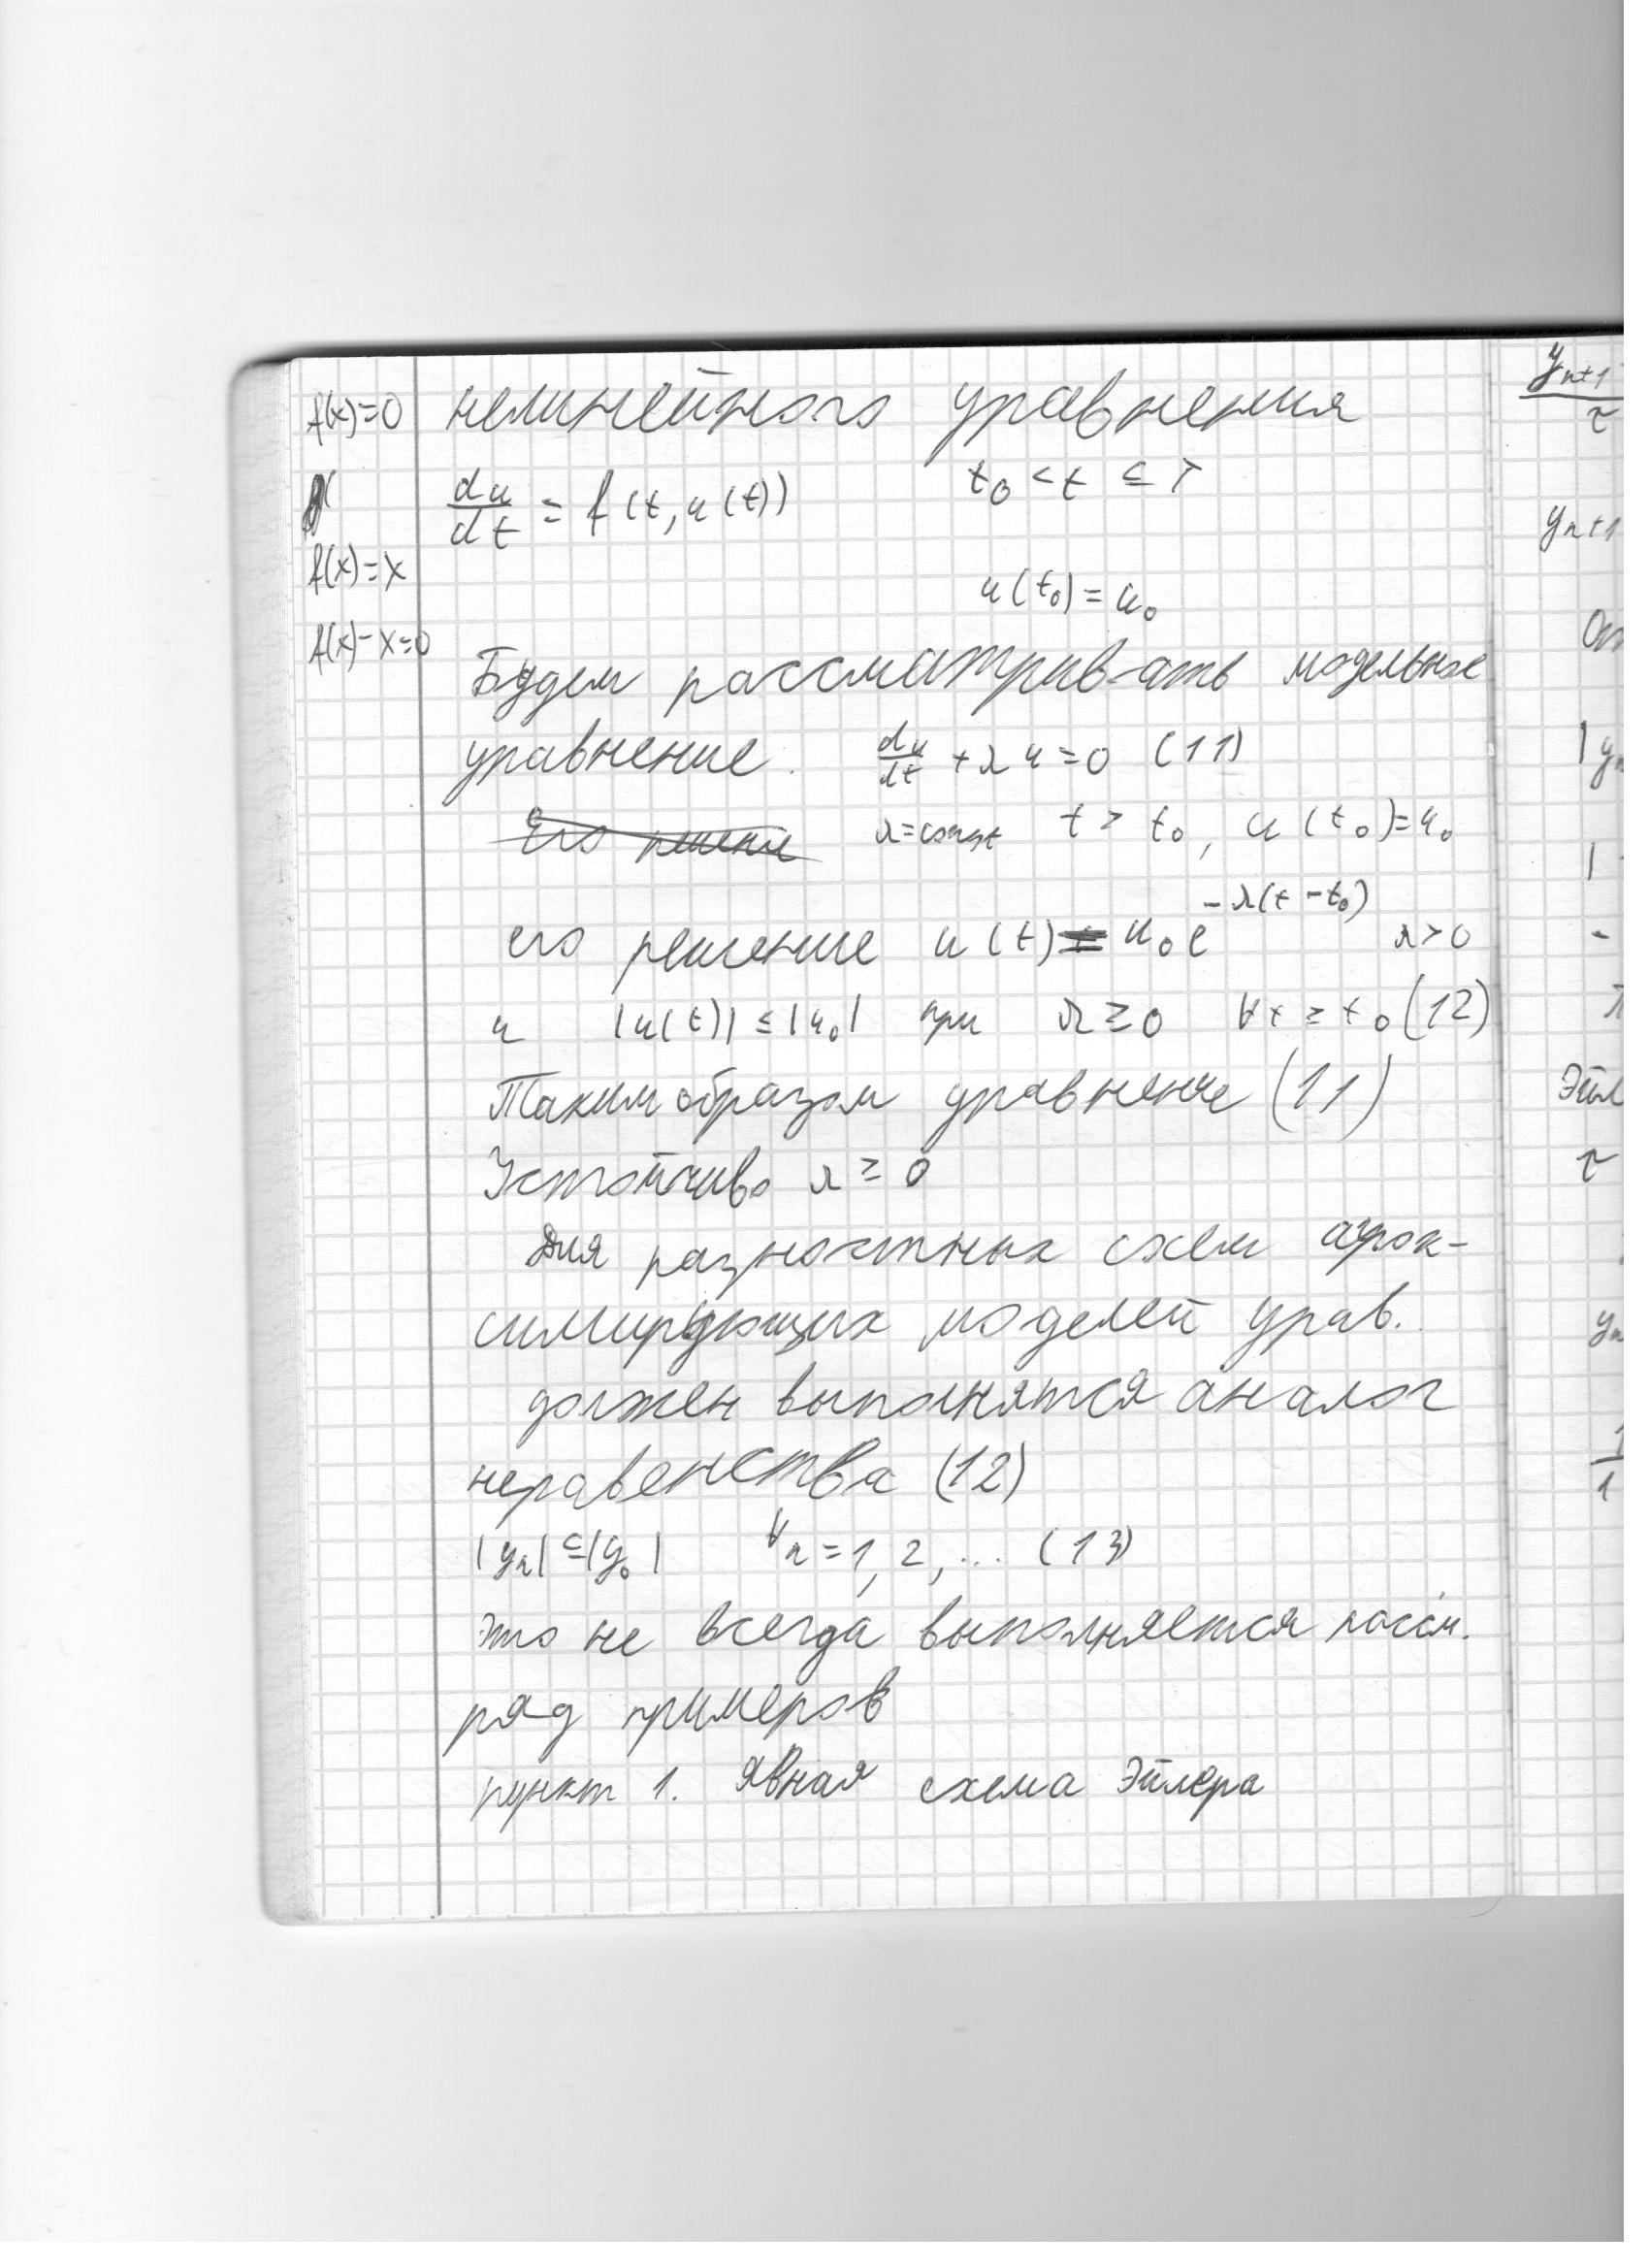 f(x)=0
f(x)=x
f(x)-x=0
нелинейного уравнения
du/dt = f(t,u(t)) t₀ < t ≤ T
u(t₀)=u₀
Будем рассматрив-ать модельное
уравнение. du/dt + λu=0 (11)
Его решение λ=const t > t₀, u(t₀)=u₀
его решение u(t) = u₀e^{-λ(t-t₀)} λ>0
и |u(t)| ≤ |u₀| при λ ≥ 0 ∀t ≥ t₀ (12)
Таким образом уравнение (11)
Устойчиво λ ≥ 0
Для разностных схем
симирующих моделей урав.
должен выполнятся аналог
неравенства (12)
|yₙ| ≤ |y₀| ∀n = 1, 2, ... (13)
Это не всегда выполняется рассм.
ряд примеров
пункт 1. Явная схема Эйлера
yₙ₊₁
τ
yₙ₊₁
Эйл
τ